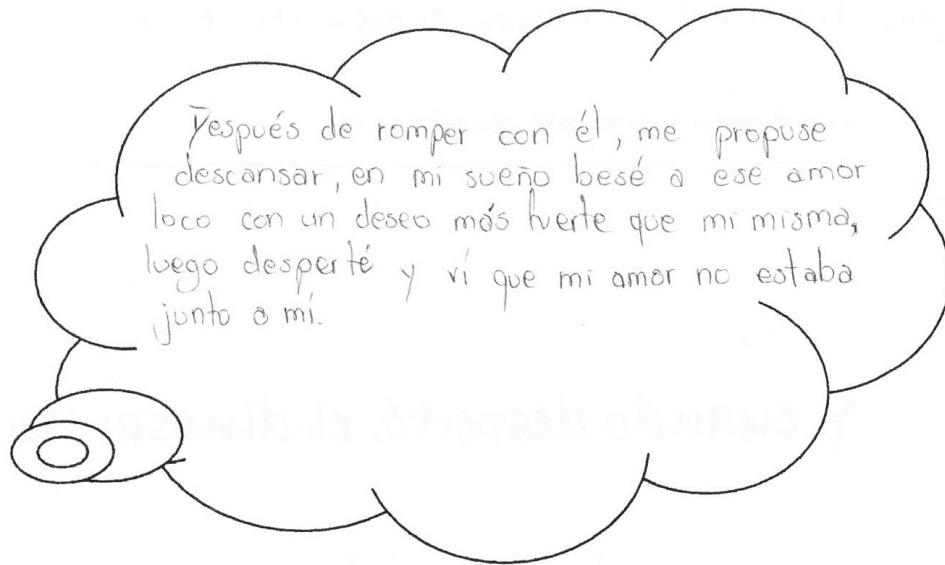 Después de romper con él, me propuse
descansar, en mi sueño besé a ese amor
loco con un deseo más fuerte que mi misma,
luego desperté y ví que mi amor no estaba
junto a mí.
Y cuando despertó, el dinosaurio